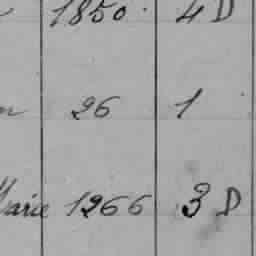 1850. 4 D
26 1
Marie 1266 3 D